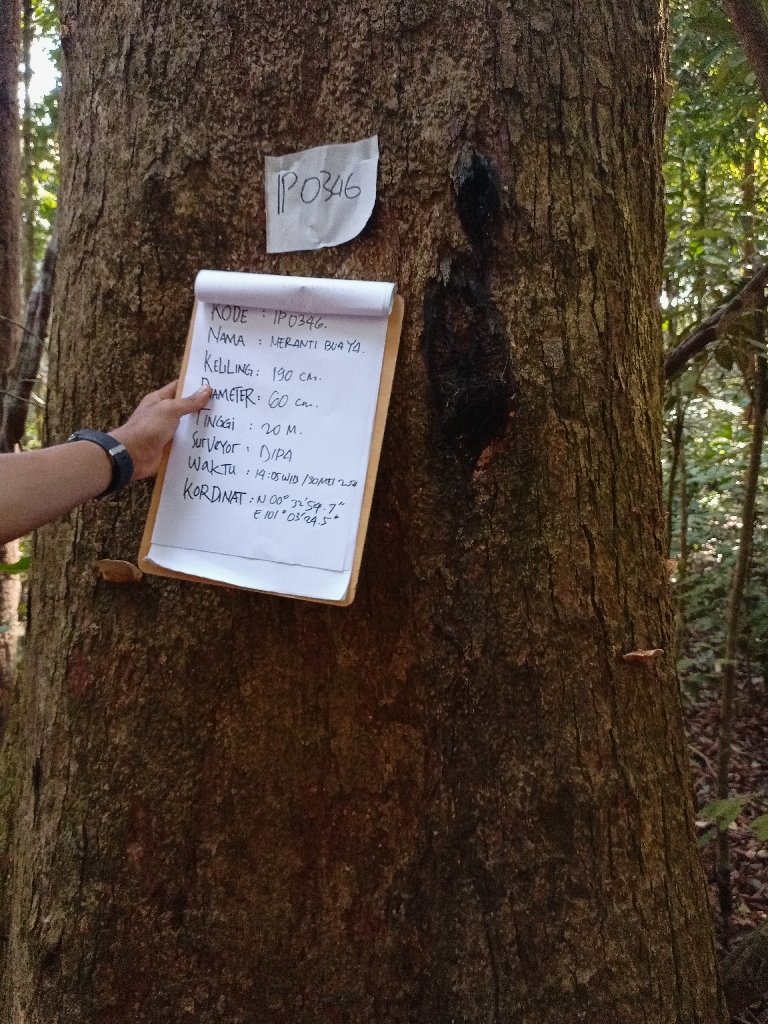 IP0346
KODE : IP0346.
NAMA : MERANTI BUAYA.
KELILING: 190 cm.
DIAMETER: 60 cm.
TINGGI : 20 M.
SURVEYOR : DIPA
WAKTU : 14:05 WIB /30 MEI
KORDINAT : N 00° 32' 59.7"
E 101° 03' 24.5"